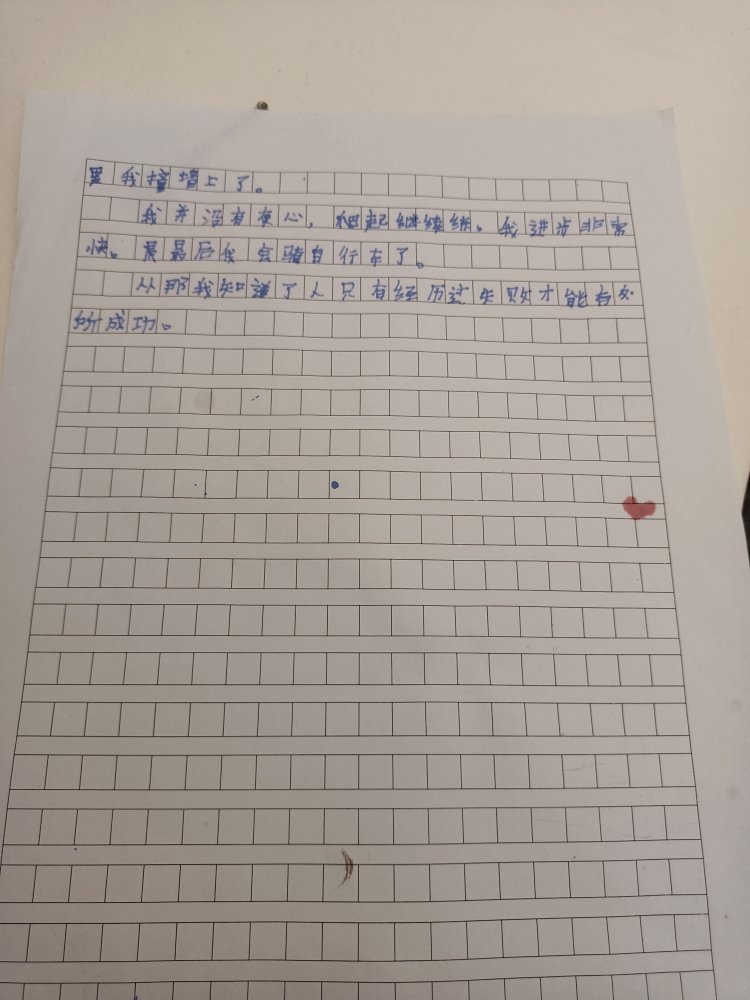 果我撞墙上了。
我并没有灰心，爬起继续练。我进步非常
快。最最后我会骑自行车了。
从那我知道了人只有经历过失败才能有处
所成功。